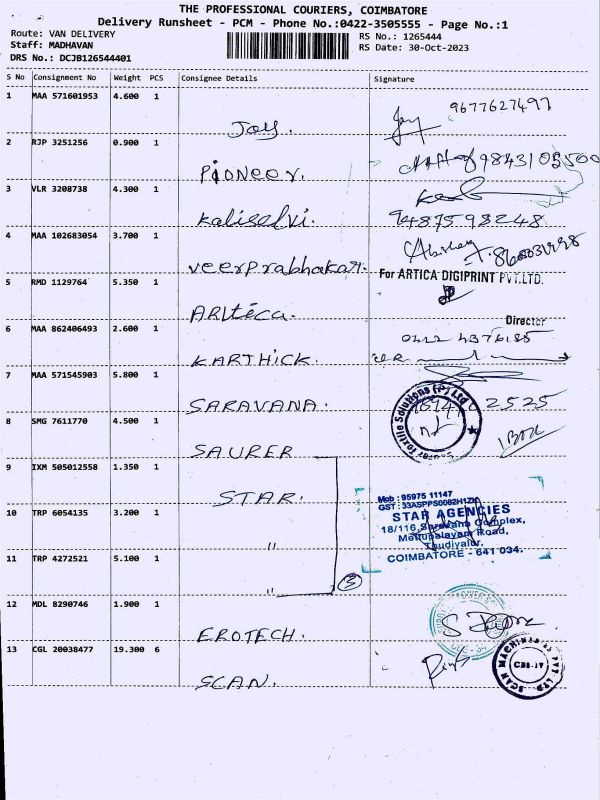 THE PROFESSIONAL COURIERS, COIMBATORE
Delivery Runsheet - PCM - Phone No.:0422-3505555 - Page No.:1
Route: VAN DELIVERY
Staff: MADHAVAN
DRS No.: DCJB126544401
RS No.: 1265444
RS Date: 30-Oct-2023
S No Consignment No Weight PCS Consignee Details Signature
1 MAA 571601953 4.600 1 Joy. 9677627497
2 RJP 3251256 0.900 1 Pioneer. 9843105500
3 VLR 3208738 4.300 1 Kaliselvi. 9487598248
4 MAA 102683054 3.700 1 Veerprabhakar.
5 RMD 1129764 5.350 1 ARtica. For ARTICA DIGIPRINT PVT.LTD.
Director
6 MAA 862406493 2.600 1 KARTHICK. 0422 4376185
7 MAA 571545903 5.800 1 SARAVANA. 2525
8 SMG 7611770 4.500 1 SAURER Textile Solutions (P) Ltd 1 Box
9 IXM 505012558 1.350 1 STAR.
Mob : 95975 11147
GST : 33ASPPS0002H1ZK
STAR AGENCIES
18/116, Saravana Complex,
Mettupalayam Road,
Thudiyalur,
COIMBATORE - 641 034.
10 TRP 6054135 3.200 1 "
11 TRP 4272521 5.100 1 " 3
12 MDL 8290746 1.900 1 EROTECH.
13 CGL 20038477 19.300 6 SCAN. SCAN MACHINERIES PVT LTD CBE-17